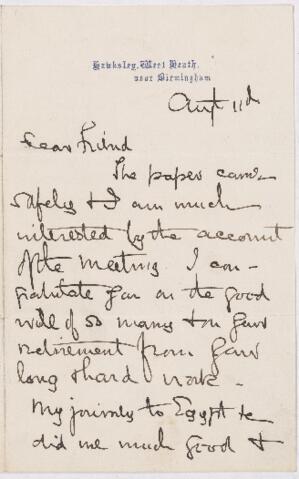 Hawksley, West Heath,
near Birmingham
Augt 11th
Dear Friend
The paper came
safely & I am much
interested by the account
of the meeting. I con-
gratulate you on the good
will of so many & on your
retirement from your
long & hard work -
My journey to Egypt &c
did me much good &